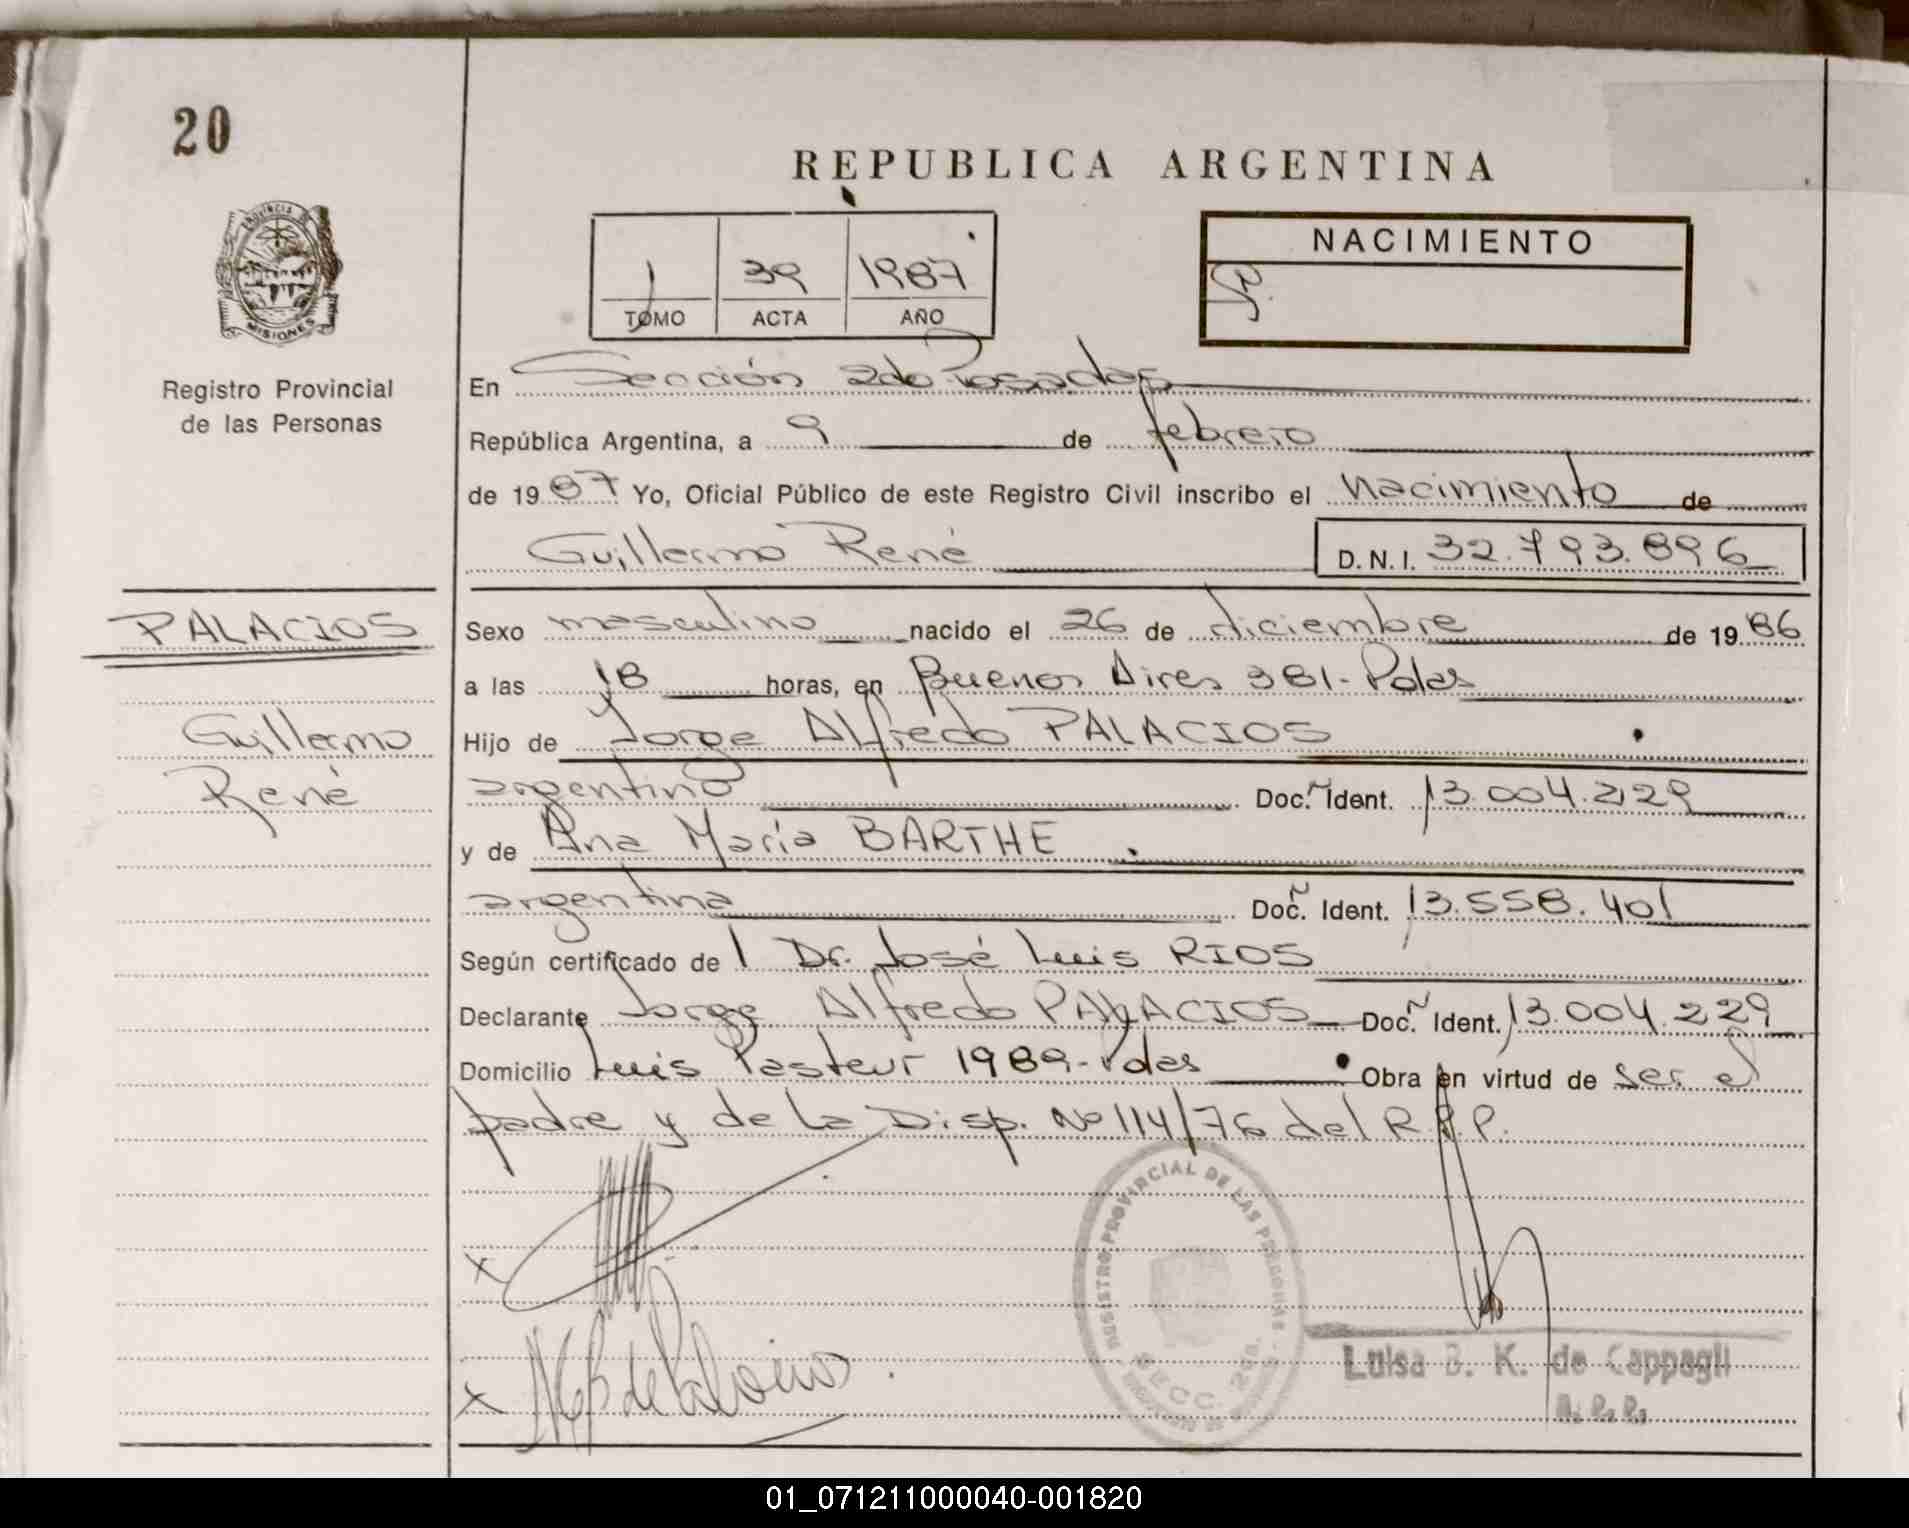 20
REPUBLICA ARGENTINA
PROVINCIA DE
MISIONES
Registro Provincial
de las Personas
1 39 1987
TOMO ACTA AÑO
NACIMIENTO
En Sección 2da Posadas
República Argentina, a 9 de febrero
de 1987 Yo, Oficial Público de este Registro Civil inscribo el nacimiento de
Guillermo René D.N.I. 32.793.896
PALACIOS
Guillermo
René
Sexo masculino nacido el 26 de diciembre de 1986
a las 18 horas, en Buenos Aires 381-Pdas
Hijo de Jorge Alfredo PALACIOS
argentino Doc. Ident. 13.004.229
y de Ana María BARTHE
argentina Doc. Ident. 13.558.401
Según certificado de l Dr. José Luis RIOS
Declarante Jorge Alfredo PALACIOS Doc. Ident. 13.004.229
Domicilio Luis Pasteur 1989-Pdas Obra en virtud de ser el
padre y de la Disp. Nº 114/76 del R.P.P.
REGISTRO PROVINCIAL DE LAS PERSONAS
SECC. 2da.
Luisa B. K. de Cappagli
01_071211000040-001820